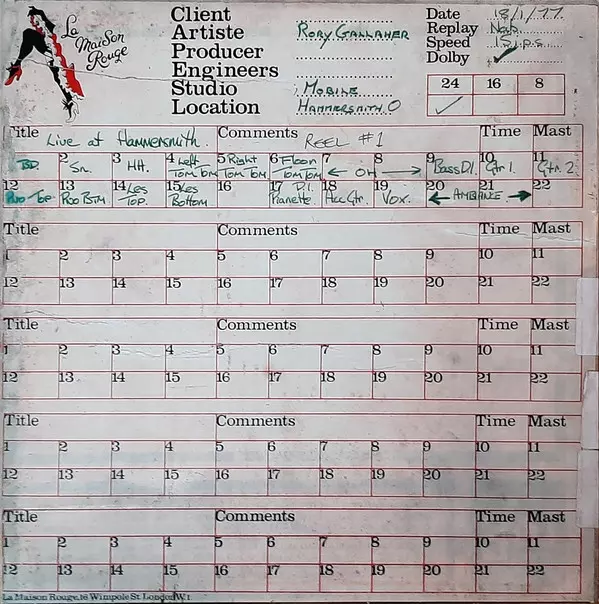 La Maison Rouge
Client
Artiste RORY GALLAHER
Producer
Engineers
Studio MOBILE
Location HAMMERSMITH O
Date 18/1/77.
Replay Nab.
Speed 15 i.p.s.
Dolby ✓
24 16 8
✓
Title Live at Hammersmith. Comments REEL #1 Time Mast
1 BD. 2 Sn. 3 HH. 4 Left Tom Tom 5 Right Tom Tom 6 Floor Tom Tom 7 ← OH 8 → 9 Bass D.I. 10 Gtr 1. 11 Gtr. 2.
12 PNO TOP 13 PNO BTM 14 Les TOP. 15 Les BOTTOM. 16 17 D.I. Pianette 18 Acc Gtr. 19 VOX. 20 ← AMBIANCE 21 → 22
Title Comments Time Mast
1 2 3 4 5 6 7 8 9 10 11
12 13 14 15 16 17 18 19 20 21 22
Title Comments Time Mast
1 2 3 4 5 6 7 8 9 10 11
12 13 14 15 16 17 18 19 20 21 22
Title Comments Time Mast
1 2 3 4 5 6 7 8 9 10 11
12 13 14 15 16 17 18 19 20 21 22
Title Comments Time Mast
1 2 3 4 5 6 7 8 9 10 11
12 13 14 15 16 17 18 19 20 21 22
La Maison Rouge, 16 Wimpole St London W1